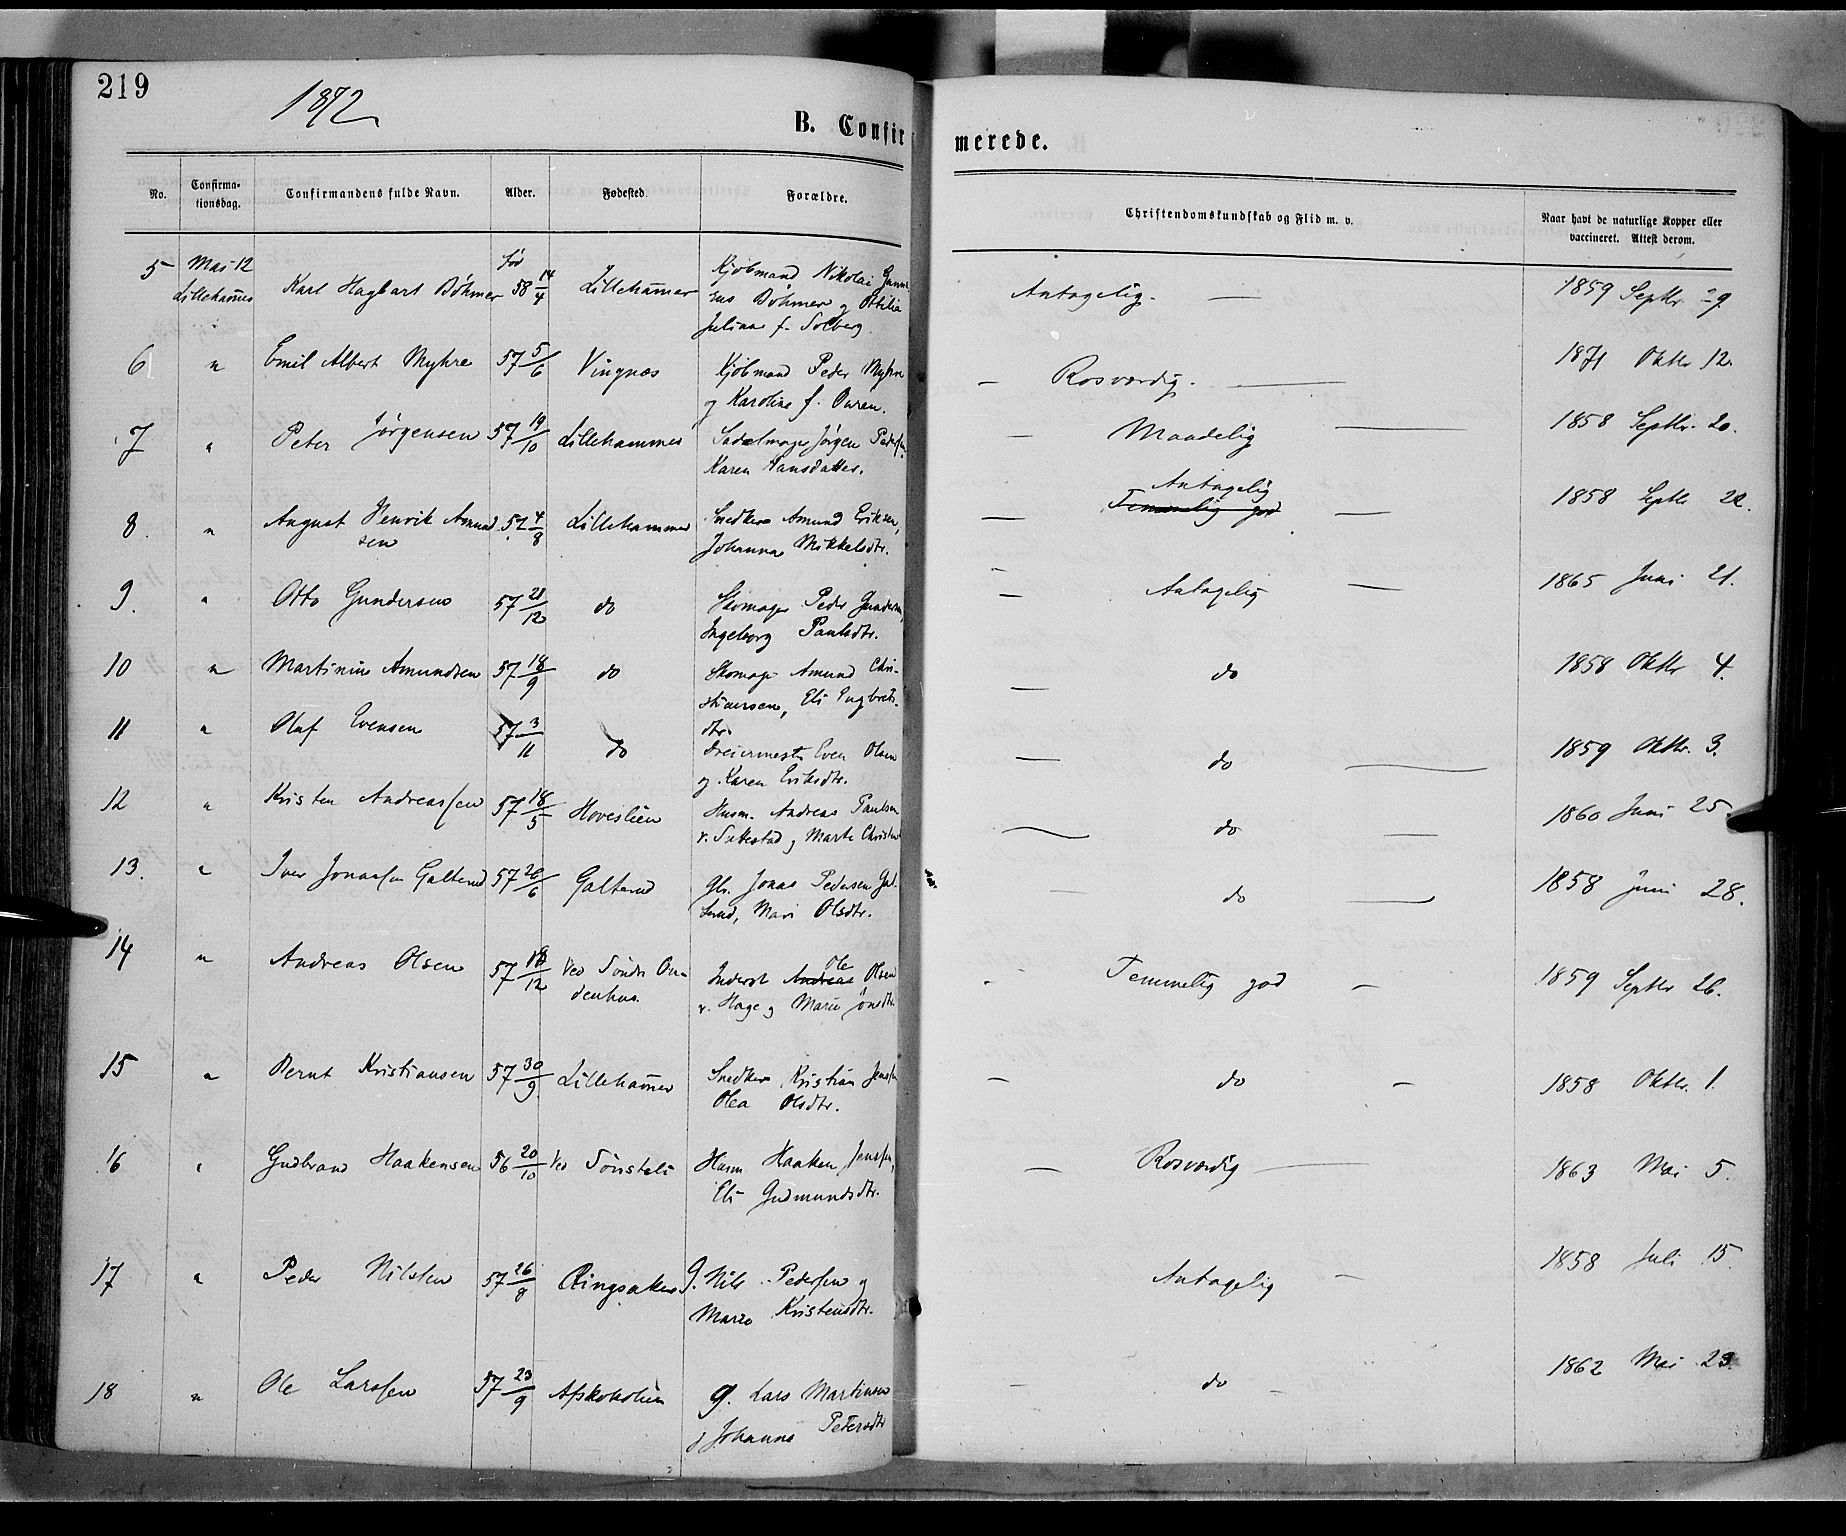 219
1872
B. Confirmerede.
No. Confirmationsdag. Confirmandens fulde Navn. Alder. Fødested. Forældre. Christendomskundskab og Flid m. v. Naar havt de naturlige Kopper eller vaccineret. Attest derom.
5 Mai 12 Lillehamer Karl Hagbart Böhmer før 58 14/4 Lillehamer Kjöbmand Nikolai Böhmer og Othilia Juliane f. Solberg. Antagelig. — 1859 Septbr 29
6 " Emil Albert Myhre 57 5/6 Vingnæs Kjöbmand Peder Myhre og Karoline f. Owren. — Rosværdig. — 1871 Oktbr 12.
7 " Peter Jørgensen 57 19/10 Lillehammer Sadelmager Jørgen Pedersen Karen Hansdatter. — Maadelig — 1858 Septbr. 20.
8. " August Henrik Amundsen 57 4/8 Lillehammer Snedker Amund Eriksen, Johanna Mikkelsdtr. — Antagelig Temmelig god — 1858 Septbr 22.
9. " Otto Gundersen 57 28/12 do Skomager Peder Gundersen, Ingeborg Paulsdtr. — Antagelig — 1865 Juni 21.
10 " Martinius Amundsen 57 18/9 do Skomager Amund Christiansen, Eli Engbretsdtr. — do 1858 Oktbr 4.
11 " Olaf Evensen 57 3/11 do Dreiermester Even Olsen og Karen Eriksdtr. — do — 1859 Oktbr. 3.
12 " Kristen Andreassen 57 18/5 Hovslien Husm. Andreas Paulsen v. Suttestad og Marte Christens — do — 1860 Juni 25.
13. " Iver Jonassen Galterud 57 26/6 Galterud Gbr. Jonas Pedersen Galterud, Mari Olsdtr. — do — 1858 Juni 28.
14 " Andreas Olsen 57 /12 Ved Söndre Inderst Andreas Ole Olsen v. Hage og Marie Jonsdtr. - Temmelig god - 1859 Septbr 26.
15 " Bernt Kristiansen 57 30/9 Lillehamer Snedker Kristian Jensen Olea Olsdtr. — do - 1858 Oktbr. 1.
16 " Gudbrand Haakensen 56 20/10 Ved Husm Haaken Jenssen, Eli Gudmundsdtr. — Rosværdig — 1863 Mai 5.
17 " Peder Nilsten 57 26/8 Ringsaker g. Nils Pedersen og Marie Kristensdtr. Antagelig — 1858 Juli 15.
18 " Ole Larssen 57 23/9 g. Lars Martinsen og Johanne Petersdtr — do - 1862 Mai 23.